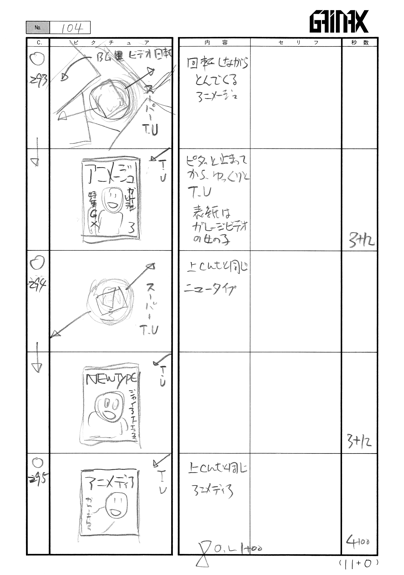 GAINAX
№ 104
C. ピクチュア 内容 セリフ 秒数
293
BL黒 ビデオ回転
スーパー
T.U
回転しながら
とんでくる
アニメージュ
T.U
アニメージュ
3
ピタッと止まって
から、ゆっくりと
T.U
表紙は
ガレージビデオ
の女の子
3+12
294
スーパー
T.U
上Cutと同じ
ニュータイプ
T.U
NEWTYPE
3+12
295
T.U
アニメディア
上Cutと同じ
アニメディア
O.L 1+00
4+00
(11+0)